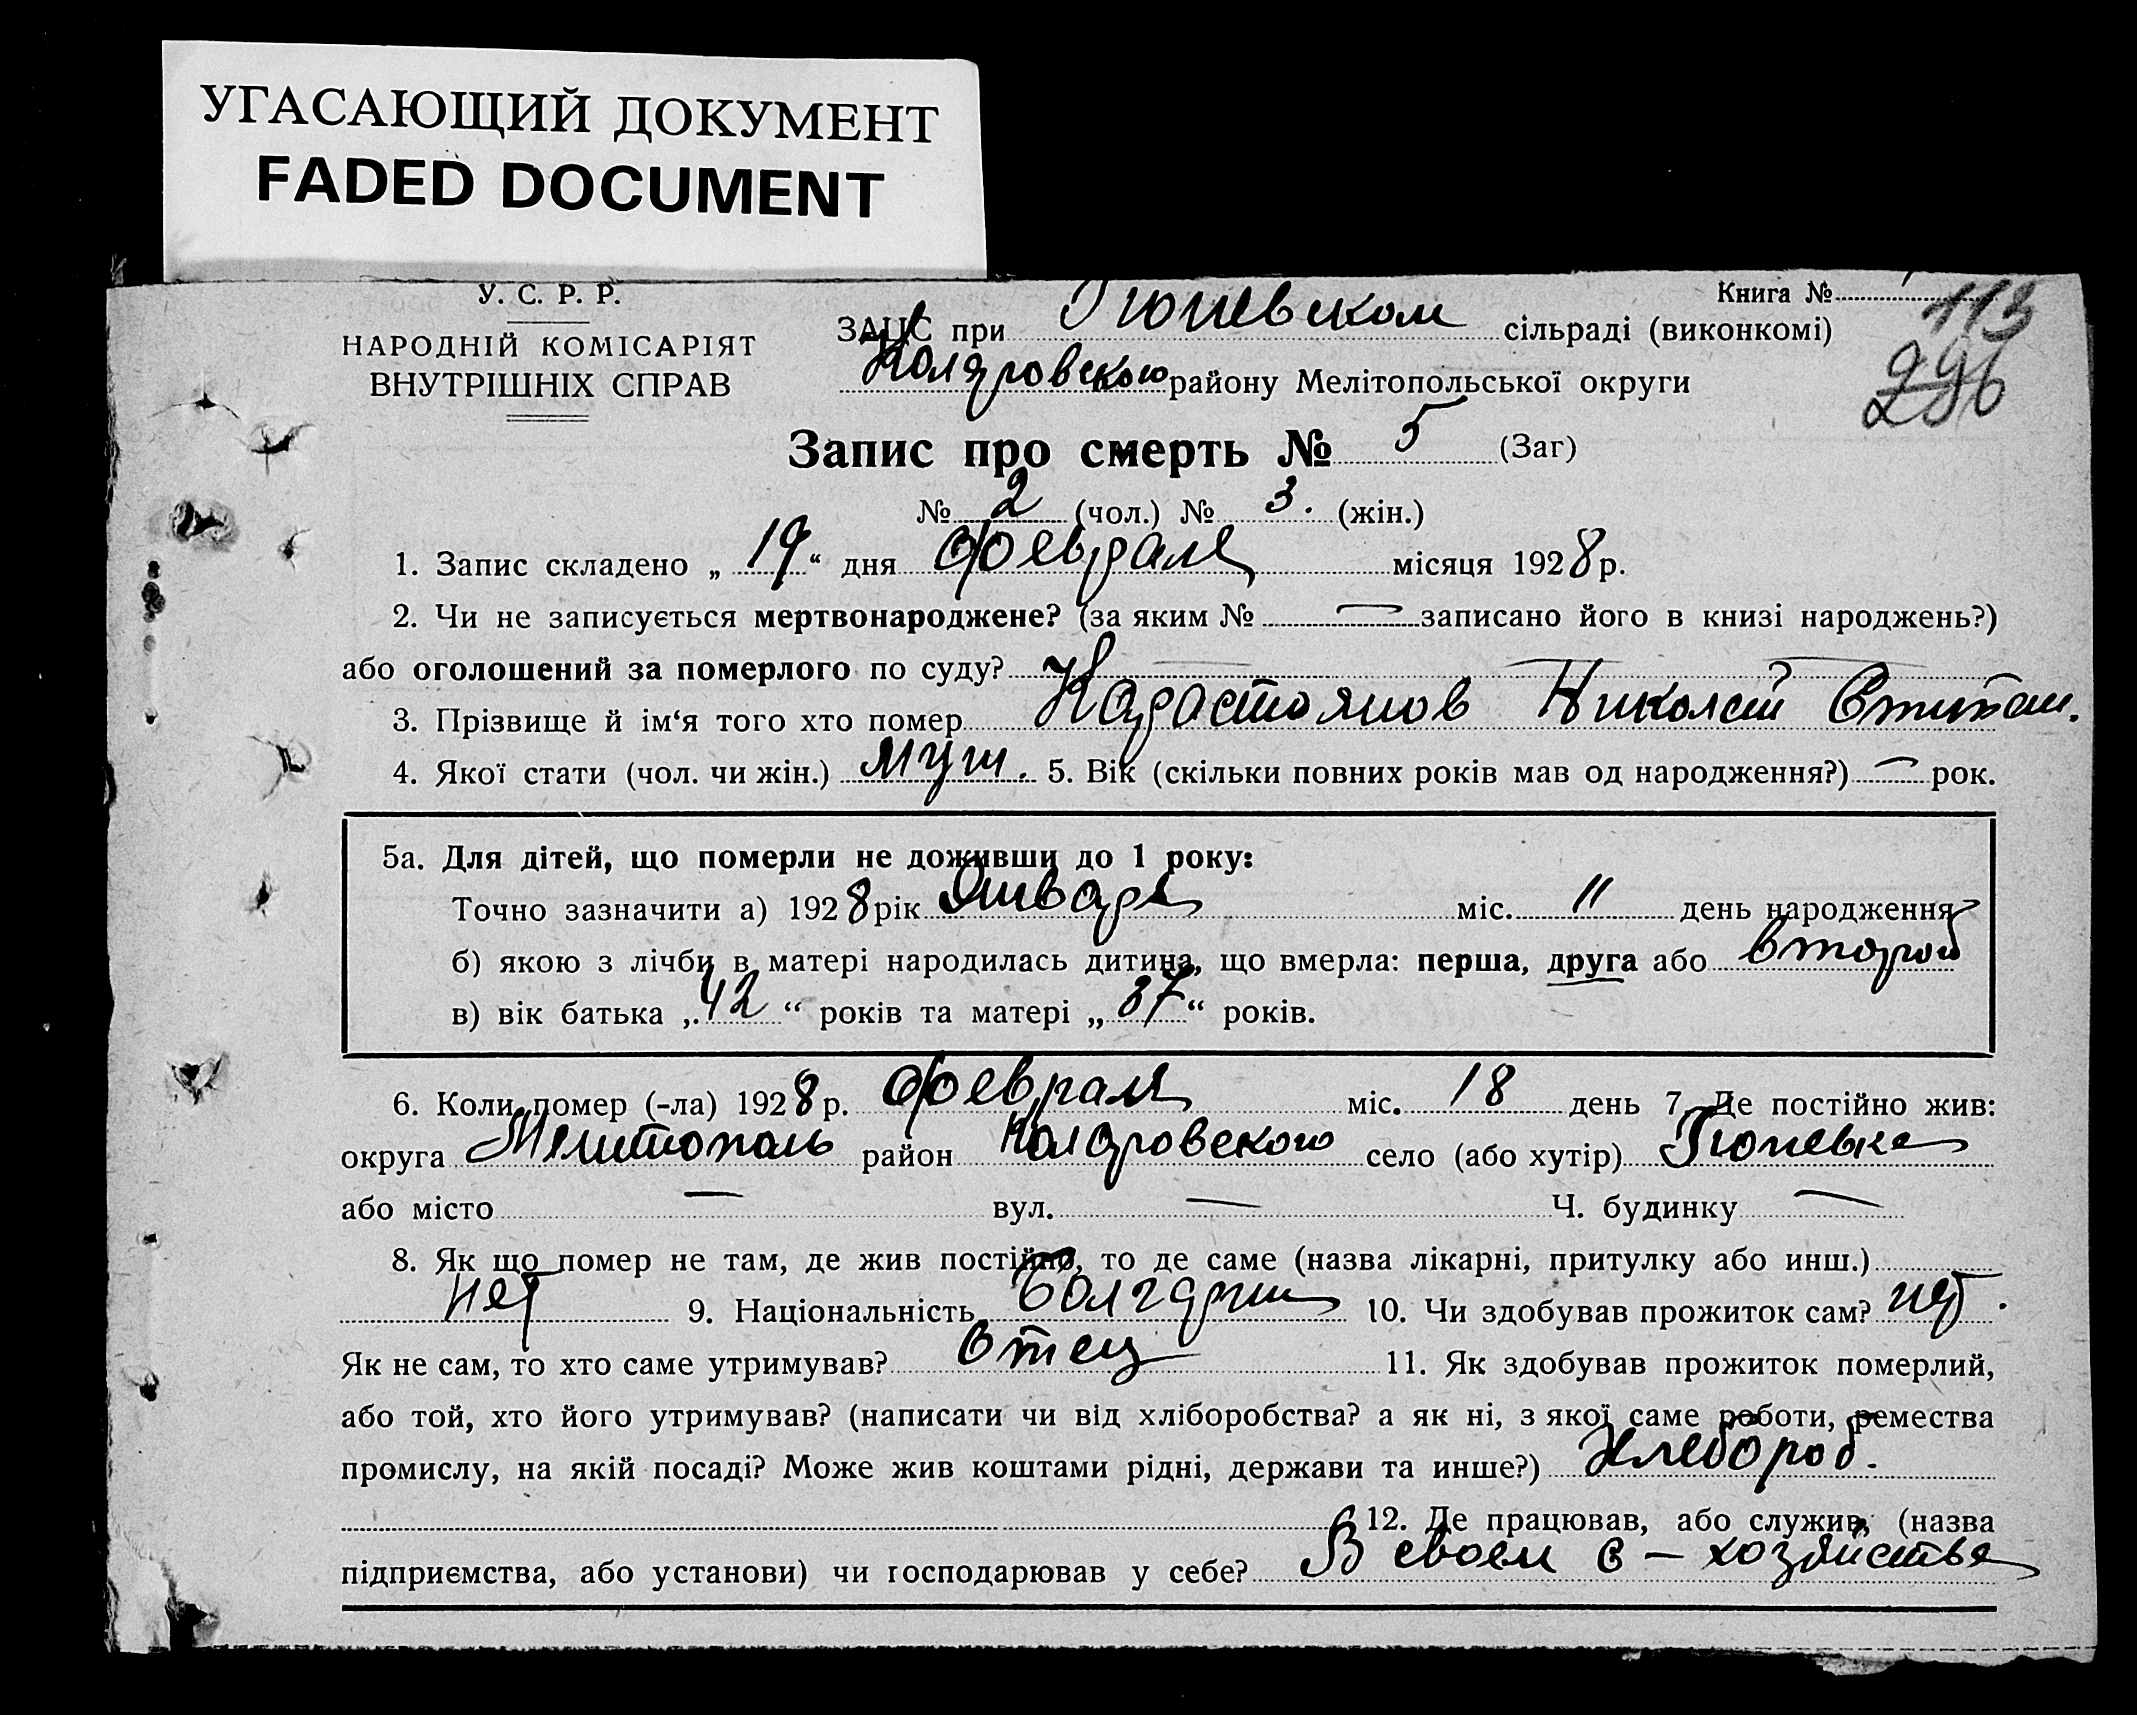 УГАСАЮЩИЙ ДОКУМЕНТ
FADED DOCUMENT
У. С. Р. Р.
НАРОДНІЙ КОМІСАРІЯТ
ВНУТРІШНІХ СПРАВ
Книга №
113
296
ЗАЦС при Гюневском сільраді (виконкомі)
Коларовского району Мелітопольської округи
Запис про смерть № 5 (Заг)
№ 2 (чол.) № 3. (жін.)
1. Запис складено „ 19 “ дня февраля місяця 1928 р.
2. Чи не записується мертвонароджене? (за яким № — записано його в книзі народжень?)
або оголошений за померлого по суду? —
3. Прізвище й ім‘я того хто помер Карастоянов Николай
4. Якої стати (чол. чи жін.) муш. 5. Вік (скільки повних років мав од народження?) — рок.
5а. Для дітей, що померли не доживши до 1 року:
Точно зазначити а) 1928 рік Января міс. 11 день народження
б) якою з лічби в матері народилась дитина, що вмерла: перша, друга або второй
в) вік батька „ 42 “ років та матері „ 37 “ років.
6. Коли помер (-ла) 1928 р. февраля міс. 18 день 7. Де постійно жив:
округа Мелитополь район Коларовского село (або хутір) Гюневка
або місто — вул. — Ч. будинку —
8. Як що помер не там, де жив постійно, то де саме (назва лікарні, притулку або инш.)
нет 9. Національність Болгарин 10. Чи здобував прожиток сам? нет.
Як не сам, то хто саме утримував? Отец 11. Як здобував прожиток померлий,
або той, хто його утримував? (написати чи від хліборобства? а як ні, з якої саме роботи, ремества
промислу, на якій посаді? Може жив коштами рідні, держави та инше?) Хлебороб.
12. Де працював, або служив, (назва
підприємства, або установи) чи господарював у себе? В своем с — хозяйстве